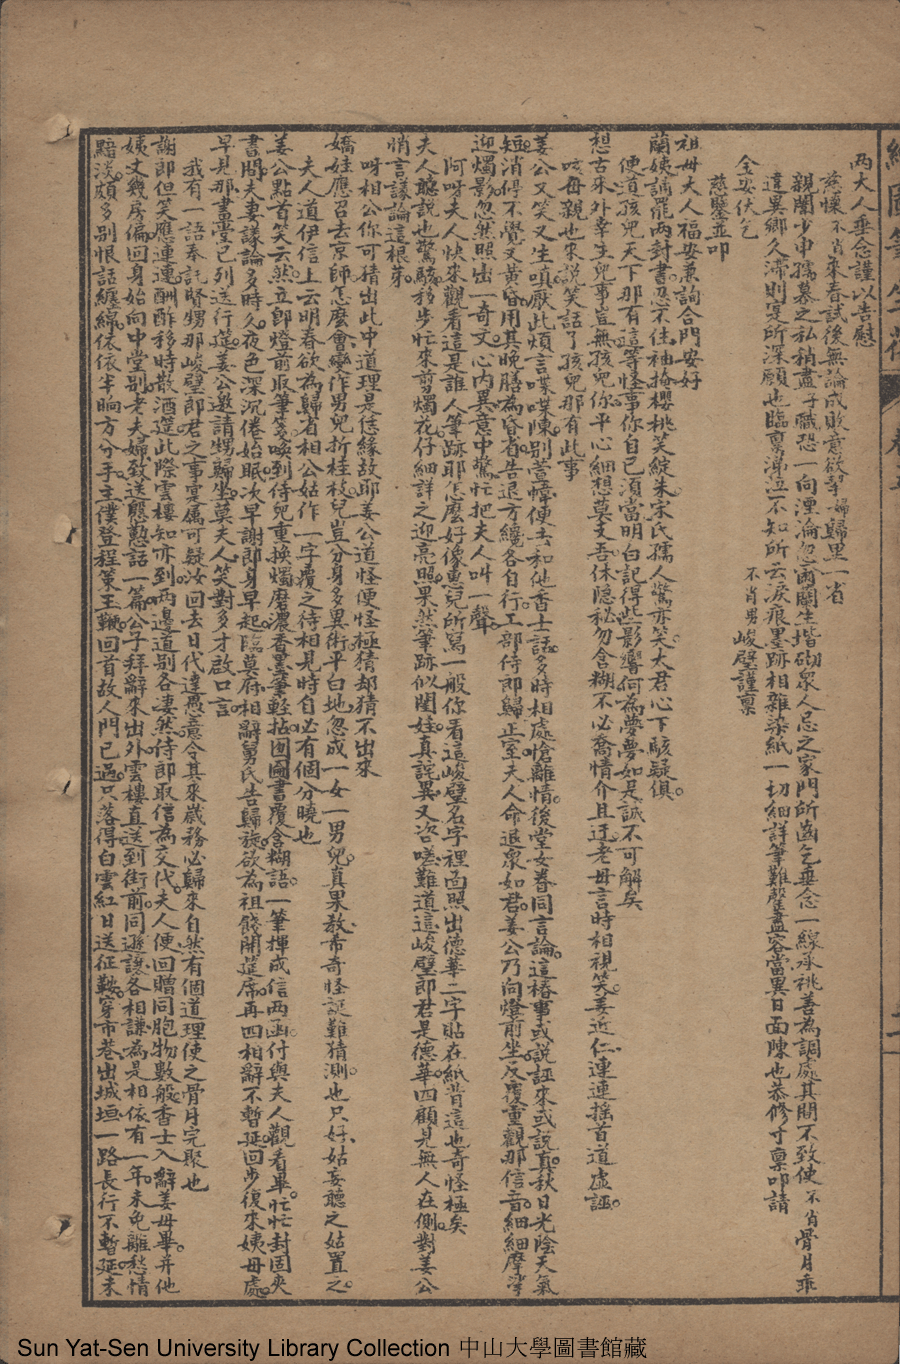 兩大人垂念謹以告慰
慈懷不肖來春試後無論成敗意欲挈婦歸里一省
親闈少申孺慕之私稍盡子職恐一向湮淪忽爾蘭生堦砌眾人忌之家門所齒乞垂念一線承祧善為調處其間不致使不肖骨月乖
違異鄉久滯則寔所深願也臨稟涕泣不知所云淚痕墨跡相雜染紙一切細詳筆難罄盡容當異日面陳也恭修寸稟叩請
金安伏乞 不肖男峻壁謹稟
慈鑒並叩
祖母夫人福安兼詢合門安好
蘭姨誦罷兩封書忍不住袖掩櫻桃笑綻朱宋氏孺人驚亦笑大君心下駭疑俱
便道孩兒天下那有這等怪事你自己須當明白記得些影響何為夢夢如是誠不可解矣
想古來外幸生兒事豈無孩兒你平心細想莫支吾休隱秘勿含糊不必喬情介且迂老母言時相視笑姜近仁連連搖首道虛誣
咳母親也來說笑話了孩兒那有此事
姜公又笑又生嗔厭此煩言喋喋陳別萱幃便去和他香士話多時相處愴離情後堂女眷同言論這樁事或說誣來或說真秋日光陰天氣
短消停不覺又黃昏用其晚膳為昏省告退方纔各自行工部侍郎歸正室夫人命退眾如君姜公乃向燈前坐反覆重觀那信音細細摩挲
迎燭影忽然照出一奇文心內異意中驚忙把夫人叫一聲
阿呀夫人快來觀看這是誰人筆跡耶怎麼好像惠兒所寫一般你看這峻壁名字裡面照出德華二字貼在紙背這也奇怪極矣
夫人聽說也驚駭移步忙來剪燭花仔細詳之迎亮照果然筆跡似閨娃真詫異又咨嗟難道這峻壁郎君是德華四顧見無人在側對姜公
悄言議論這根芽
呀相公你可猜出此中道理是恁緣故耶姜公道怪便怪極猜却猜不出來
嬌娃應召去京師怎麼會變作男兒折桂枝兒豈分身多異術平白地忽成一女一男兒真果教奇奇怪誕難猜測也只好姑妄聽之姑置之
夫人道伊信上云明春欲為歸省相公姑作一字覆之待相見時自必有個分曉也
姜公點首笑云然立即燈前取筆箋喚到侍兒重換燭磨濃香墨筆輕拈囫圇書覆含糊語一筆揮成信兩函付與夫人觀看畢忙忙封固夾
書間夫妻議論多時久夜色深沉倦始眠次早謝郎身早起臨莫府相辭舅氏告歸旋欲為祖餞開筵席再四相辭不暫延回步復來姨母處
早見那畫堂已列送行筵姜公邀請甥歸坐莫夫人笑對多才啟口言
我有一語奉託賢甥那峻壁郎君之事寔属可疑汝回去日代達愚意令其來歲務必歸來自然有個道理使之骨月完聚也
謝郎但笑應連連酬酢移時散酒筵此際雲樓知亦到兩邊道別各凄然侍郎取信為交代夫人便回贈同胞物數般香士入辭姜母畢并他
姨丈幾房偏回身始向中堂別老夫婦致送慇懃話一篇公子拜辭來出外雲樓直送到街前同遜讓各相謙為是相依有一年未免離愁情
黯淡頗多別恨話纏綿依依半晌方分手主僕登程策玉鞭回首故人門已過只落得白雲紅日送征鞍穿市巷出城垣一路長行不暫延未